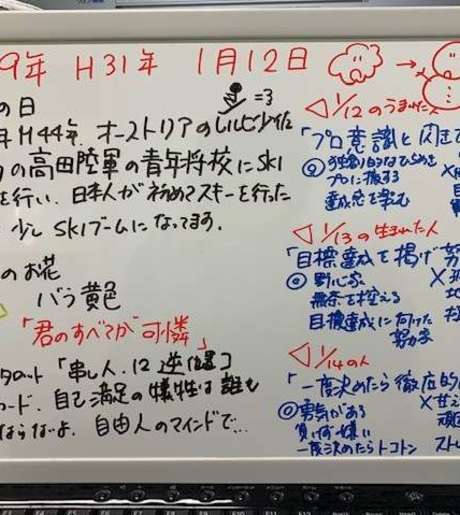 9年 H31年 1月12日
の日
=3
年 H44年、オーストリアのレルヒ少佐
の高田陸軍の青年将校にSKI
を行い、日本人が初めてスキーを行った
少しSKIブームになってます。
のお花
バラ黄色
「君のすべてが可憐」
タロット「吊し人.12 逆位置」
カード、自己満足の犠牲は誰も
ならないよ、自由人のマインドで…
1/12のうまれた人
「プロ意識と閃きで
◎独創的なひらめきを
プロに徹する
達成感を楽む
1/13の生まれた人
「目標達成を掲げ努
◎野心家
無茶を控える
目標達成に向けた
努力家
1/14の人
「一度決めたら徹底的に
◎勇気がある
負けず嫌い
一度決めたらトコトン
×甘え
頑固
スト